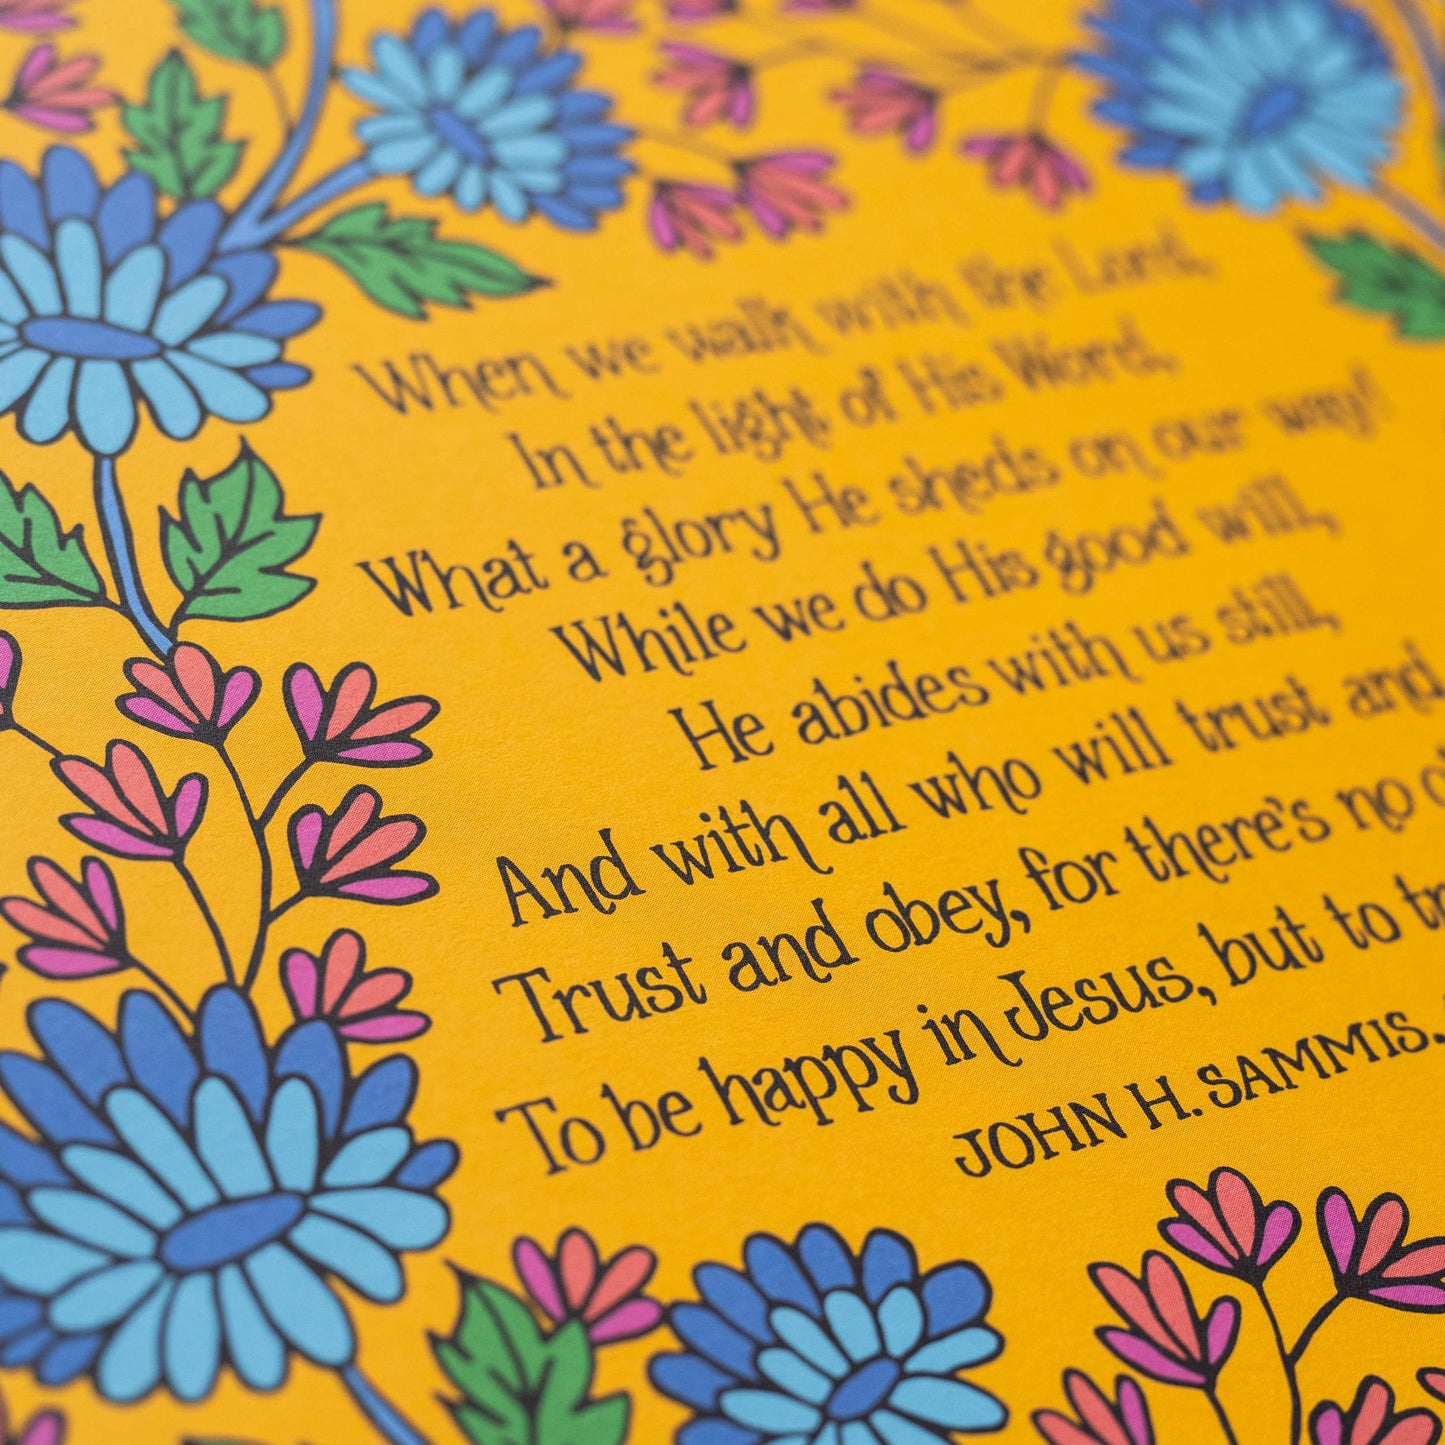 When we walk with the Lord,
In the light of His Word,
What a glory He sheds on our way!
While we do His good will,
He abides with us still,
And with all who will trust and
Trust and obey, for there's no
To be happy in Jesus, but to
JOHN H. SAMMIS.